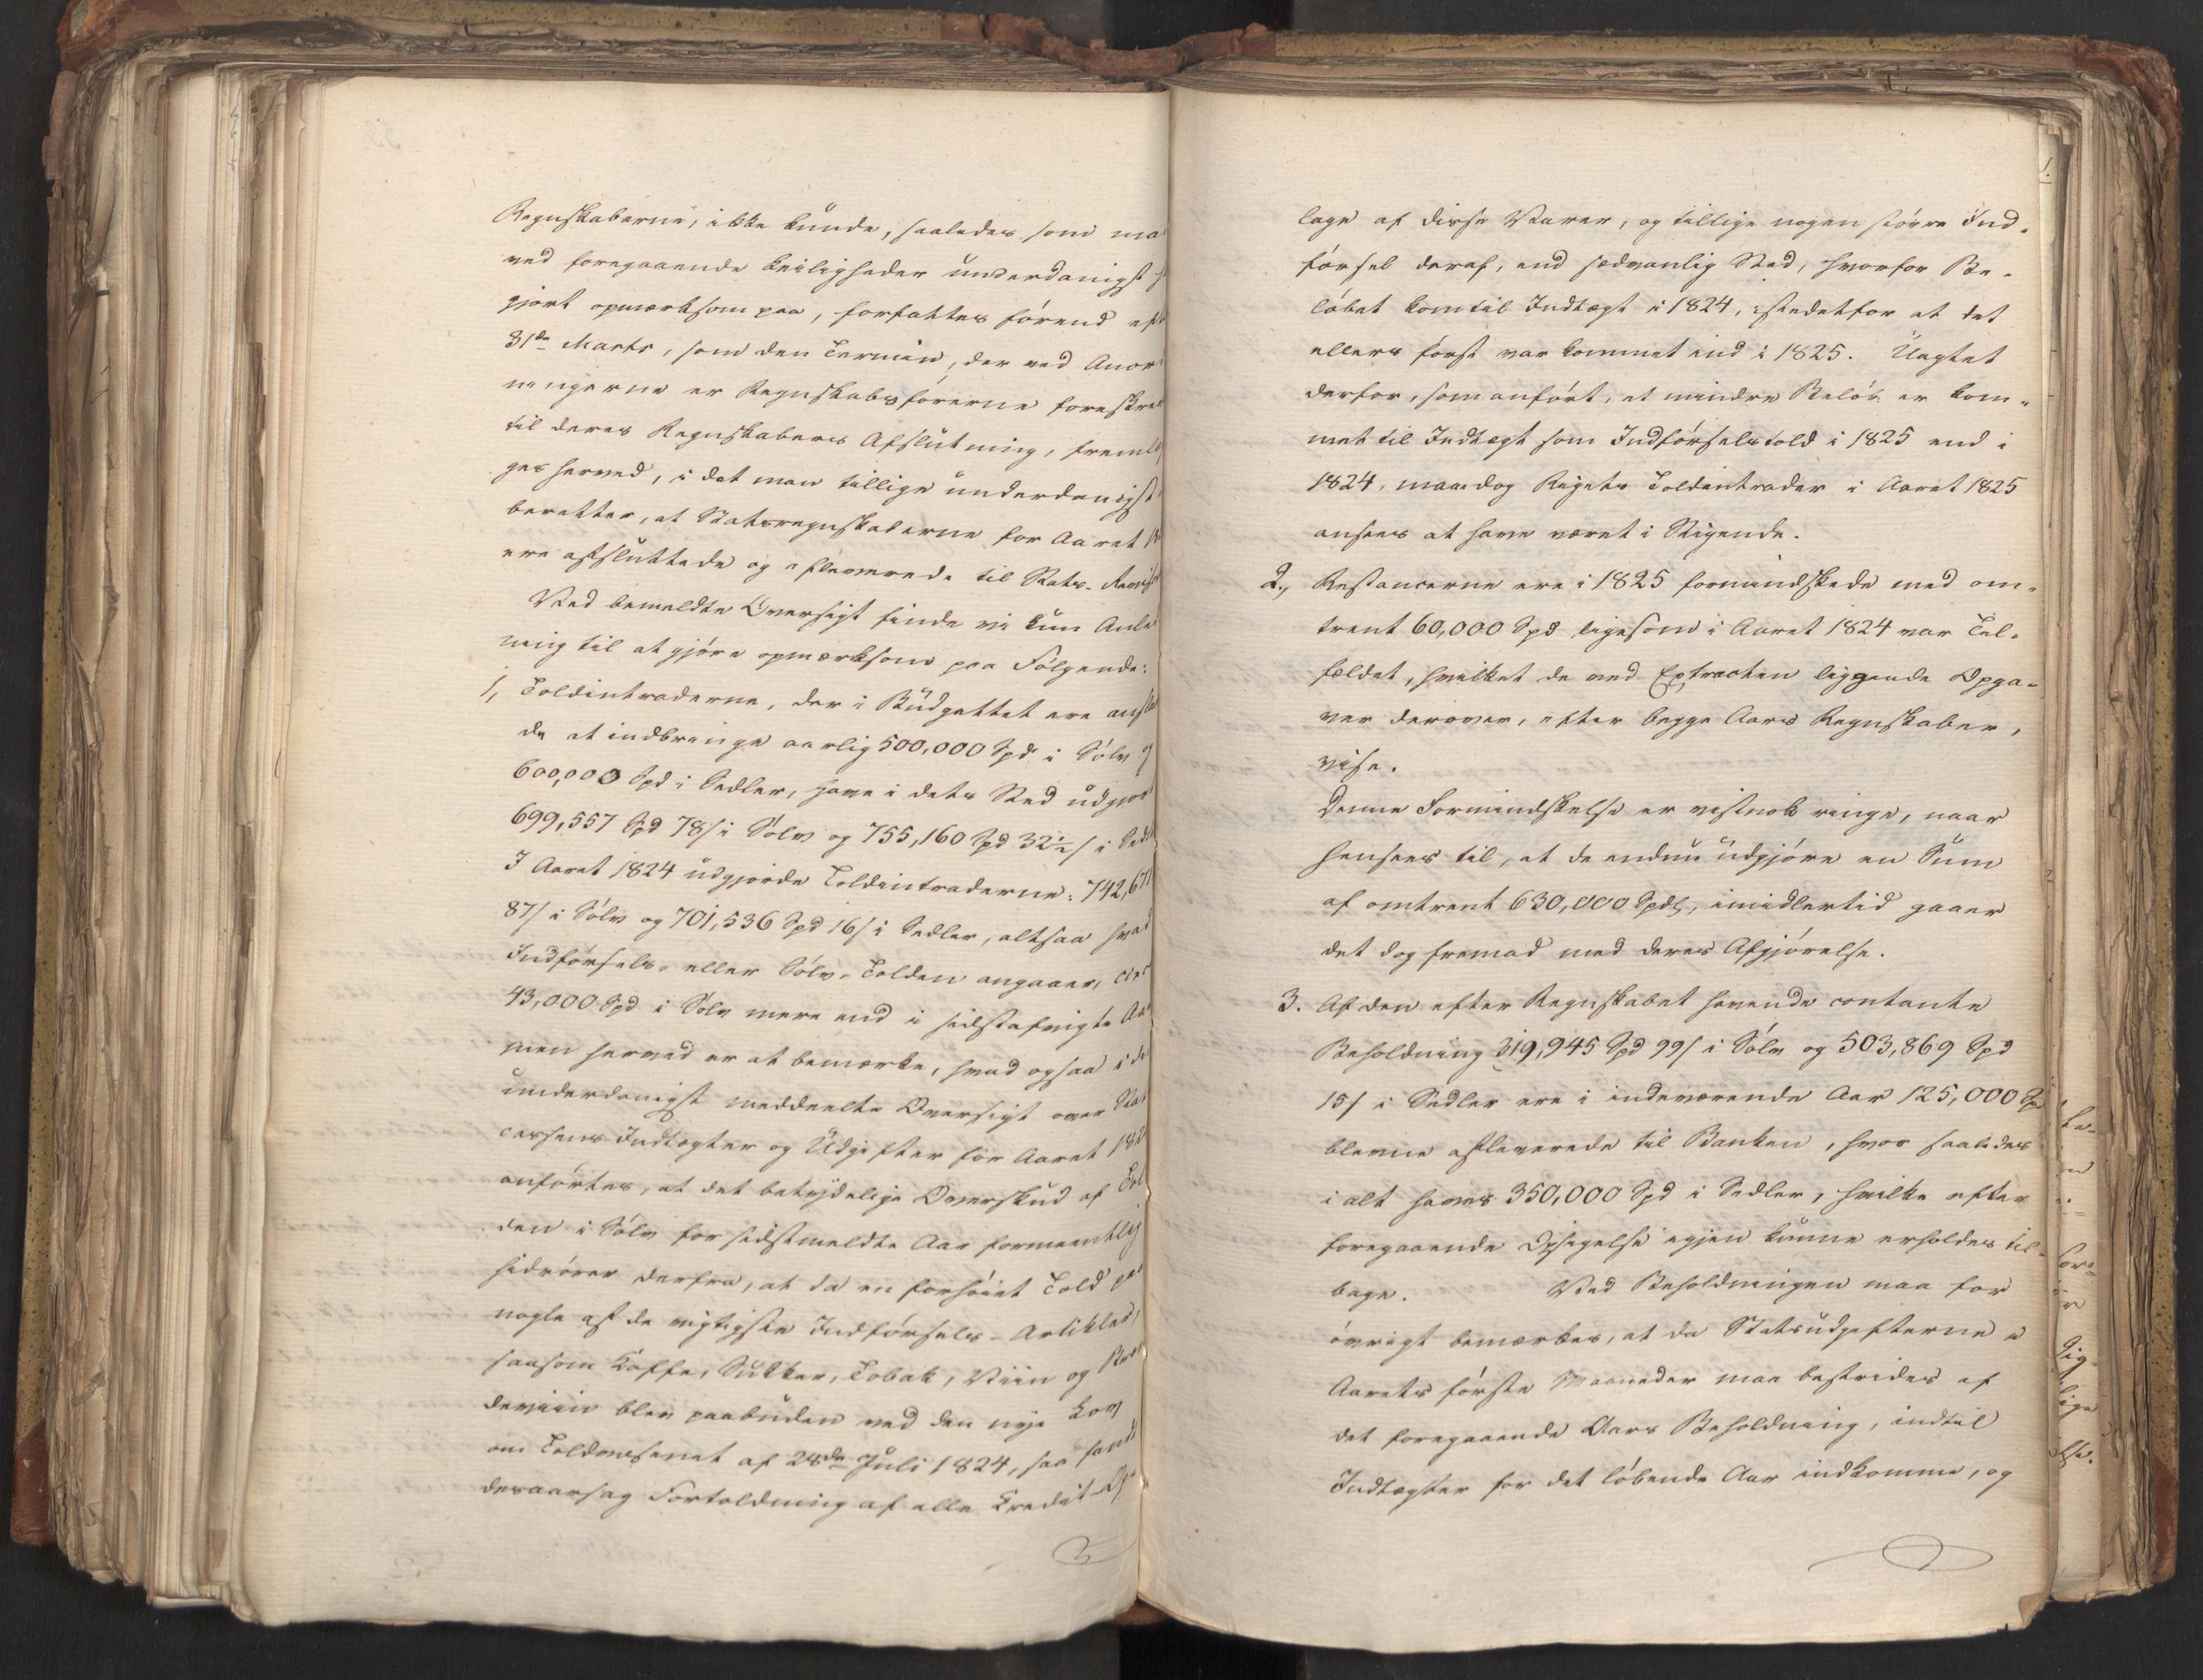 Regnskaberne, ikke kunde, saaledes som ma
ved foregaaende Leiligheder underdanigst
gjort opmærksom paa, forfattes førend eft
31de Marts, som den Termin, der ved Anor
ningerne er Regnskabsførerne foreskre
til deres Regnskabers Afslutning, fremlæg
ges herved, i det man tillige underdanigst
beretter, at Statsregnskaberne for Aaret 18
ere afsluttede og afleverede til Stats-Revis
Ved bemeldte Oversigt finde vi kun Anle
ning til at gjøre opmærksom paa Følgende:
1, Toldintraderne, der i Budgettet ere ansla
de at indbringe aarlig 500,000 Spd i Sølv og
600,000 Spd i Sedler, have i dets Sted udgjor
699,557 Spd 78 s i Sølv og 755,160 Spd 32½ s i Sedl
I Aaret 1824 udgjorde Toldintraderne: 742,671
87 s i Sølv og 701,536 Spd 16 s i Sedler, altsaa hvad
Indførsels- eller Sølv-Tolden angaaer, circ
43,000 Spd i Sølv mere end i sidstafvigte Aar
men herved er at bemærke, hvad ogsaa i de
underdanigst meddeelte Oversigt over Stat
cassens Indtægter og Udgifter for Aaret 182
anførtes, at det betydelige Overskud af Tol
den i Sølv for sidstmeldte Aar formeentlig
hidrører derfra, at da en forhøiet Told paa
nogle af de vigtigste Indførsels-Artikler,
saasom Kaffe, Sukker, Tobak, Viin og Bræn
deviin blev paabuden ved den nye Lov
om Toldvæsenet af 28de Juli 1824, saa fandt
desaarsag Fortoldning af alle Kredit-Op
lage af disse Varer, og tillige nogen større Ind-
førsel deraf, end sædvanlig Sted, hvorfor Be-
løbet kom til Indtægt i 1824, istedetfor at det
ellers først var kommet ind i 1825. Uagtet
derfor, som anført, et mindre Beløb er kom-
met til Indtægt som Indførselstold i 1825 end i
1824, maa dog Rigets Toldintrader i Aaret 1825
ansees at have været i Stigende.
2., Restancerne ere i 1825 formindskede med om-
trent 60,000 Spd ligesom i Aaret 1824 var Til-
fældet, hvilket de ved Extracten liggende Opga-
ver derover, efter begge Aars Regnskaber,
vise.
Denne Formindskelse er vistnok ringe, naar
hensees til, at de endnu udgjøre en Sum
af omtrent 630,000 Spdlr, imidlertid gaaer
det dog fremad med deres Afgjørelse.
3. Af den efter Regnskabet havende contante
Beholdning 319,945 Spd 99 s i Sølv og 503,869 Spd
15 s i Sedler ere i indeværende Aar 125,000 Sp
blevne afleverede til Banken, hvor saaledes
i alt haves 350,000 Spd i Sedler, hvilke efter
foregaaende Opsigelse igjen kunne erholdes til-
bage. Ved Beholdningen maa for
øvrigt bemærkes, at da Statsudgifterne i
Aarets første Maaneder maa bestrides af
det foregaaende Aars Beholdning, indtil
Indtægter for det løbende Aar indkomme, og